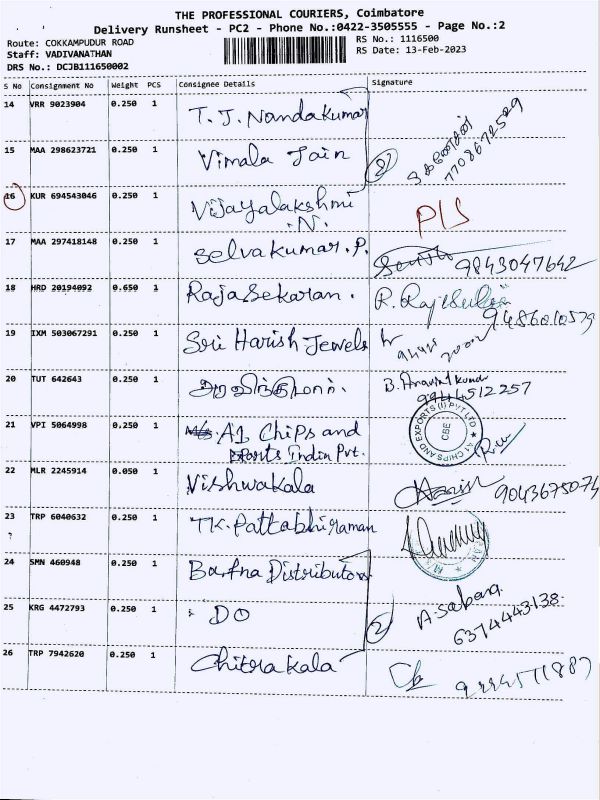 THE PROFESSIONAL COURIERS, Coimbatore
Delivery Runsheet - PC2 - Phone No.:0422-3505555 - Page No.:2
Route: COKKAMPUDUR ROAD
RS No.: 1116500
Staff: VADIVANATHAN
RS Date: 13-Feb-2023
DRS No.: DCJB111650002
S No Consignment No Weight PCS Consignee Details Signature
14 VRR 9023904 0.250 1 T. J. Nandakumar
15 MAA 298623721 0.250 1 Vimala Jain 2 7708672529
16 KUR 694543046 0.250 1 Vijayalakshmi .N. P/S
17 MAA 297418148 0.250 1 Selvakumar. P. 9843047642
18 HRD 20194092 0.650 1 RajaSekaran. R. 
19 IXM 503067291 0.250 1 Sri Harish Jewels
20 TUT 642643 0.250 1 அரவிந்குமார். B. Aravind kumar 9944512257
21 VPI 5064998 0.250 1 M/s A1 Chips and
Exports India Pvt.
A1 CHIPS AND EXPORTS (I) PVT LTD ★ CBE
22 MLR 2245914 0.050 1 Vishwakala 9043675074
23 TRP 6040632 0.250 1 TK. Pattabhiraman
?
24 SMN 460948 0.250 1 Bafna Distributors
25 KRG 4472793 0.250 1 DO 2 A. Sabana 6374443138
26 TRP 7942620 0.250 1 Chitrakala